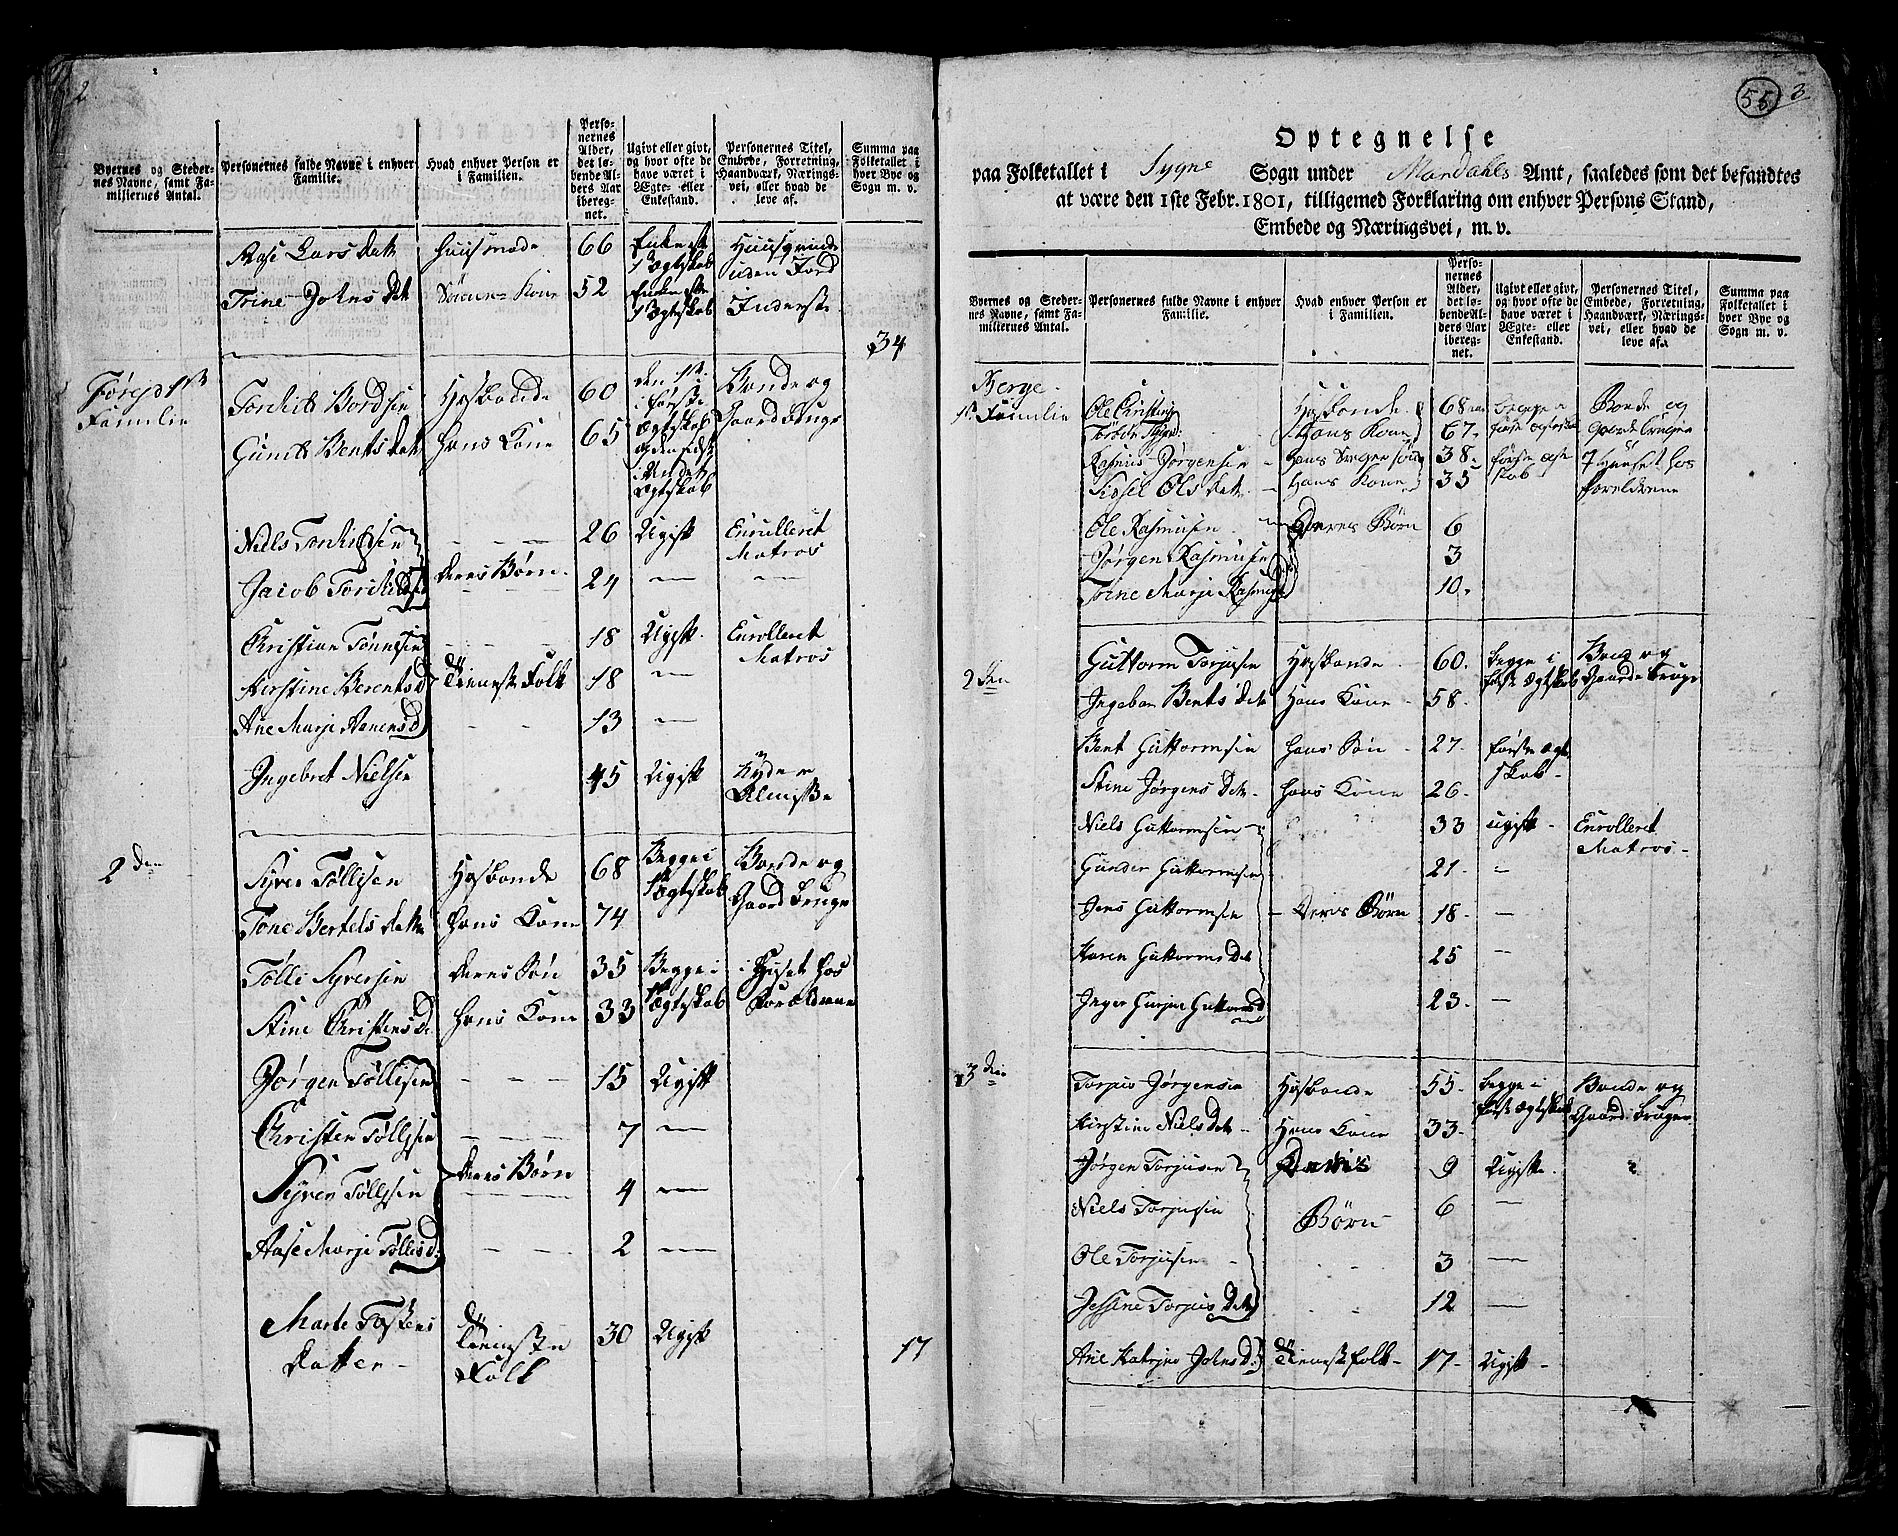 2
Byernes og Steder-
nes Navne, samt Fa-
miliernes Antal.
Personernes fulde Navne i enhver
Familie.
Hvad enhver Person er
i Familien.
Perso-
nernes
Alder,
det lø-
bende Al-
ders Aar
iberegn-
net.
Ugivt eller givt,
og hvor ofte de
have været i
Ægte- eller
Enkestand.
Personernes Titel,
Embede, Forretning,
Haandværk, Nærings-
vei, eller hvad de
leve af.
Summa paa
Folketallet i
hver Bye og
Sogn m. v.
Aase Lars datt Huusmode 66 Enke 1st Ægteskab Huusqvinde uden Jord
Trine Johns dt Kone 52 Enke Ægteskab Inderste
34
1st Familie
Torkild Bordsen Hosbonde 60 den 1st i første Ægteskab Bonde og Gaard Bruger
Bents datt Hans Kone 65
Niels Torkildsen 26 Ugift Enrolleret Matros
Jacob Torkildsen deres Børn 24 — —
Christian Tønnesen 18 Ugift Enrolleret Matros
Kirstine Berents d Tieneste Folk 18 —
Ane Marje d 13 —
Ingebret Nielsen 45 Ugift Nyder Almisse
2den
Syver Tøllisen Hosbonde 68 Begge i 1st Ægteskab Bonde og Gaard Bruger
Tone Bertels datter Hans Kone 74
Tølli Syversen deres Søn 35 Begge i 1st Ægteskab i Huset hos Forældrene
Stine Christens D. Hans Kone 33
Jørgen Tøllisen 15 Ugift
Christen Tøllisen 7 —
Syver Tøllisen deres Børn 4 —
Aase Marje Tøllis d: 2 —
Marte datter Tieneste Folk 30 Ugift
17
55
3
Optegnelse
paa Folketallet i Sygne Sogn under Mandahls Amt, saaledes som det befandtes
at være den 1ste Febr. 1801, tilligemed Forklaring om enhver Persons Stand,
Embede og Næringsvei, m. v.
Byernes og Steder-
nes Navne, samt Fa-
miliernes Antal.
Personernes fulde Navne i enhver
Familie.
Hvad enhver Person er
i Familien.
Perso-
nernes
Alder,
det lø-
bende Al-
ders Aar
iberegn-
net.
Ugivt eller givt,
og hvor ofte de
have været i
Ægte- eller
Enkestand.
Personernes Titel,
Embede, Forretning,
Haandværk, Nærings-
vei, eller hvad de
leve af.
Summa paa
Folketallet i
hver Bye og
Sogn m. v.
Berge
1st Familie
Ole Hosbonde 68 Begge i første Ægteskab Bonde og Gaardbruger
Hans Kone 67
Rasmus Jørgensen Hans Sviger søn 38 første Ægteskab i Huuset hos Forældrene
Sissel Ols datt Hans Kone 35
Ole Rasmusen Deres Børn 6
Jørgen Rasmusen 3
Trine Marje Rasmus D 10
2den
Guttorm Torjusen Hosbonde 60 begge i første Ægteskab Bonde og Gaardbruger
Ingebor Bents datt Hans Kone 58
Bent Guttormsen Hans Søn 27 første Ægteskab
Stine Jørgens Datt Hans Kone 26
Niels Guttormsen 33 ugift Enrolleret Matros
Gunder Guttormsen 21 —
Jens Guttormsen Deres Børn 18 —
Karen Guttorms Dat 25 —
Inger Guttorms D 23 —
3den
Torjus Jørgensen Hosbonde 55 begge i første Ægteskab Bonde og Gaard Bruger
Kirstine Niels Datt Hans Kone 33
Jørgen Torjusen Deres 9 Ugift
Niels Torjusen Børn 6 —
Ole Torjusen 3 —
Jessine Torjus Datt 12 —
Ane Katrine Johns D: Tieneste folk 17 Ugift